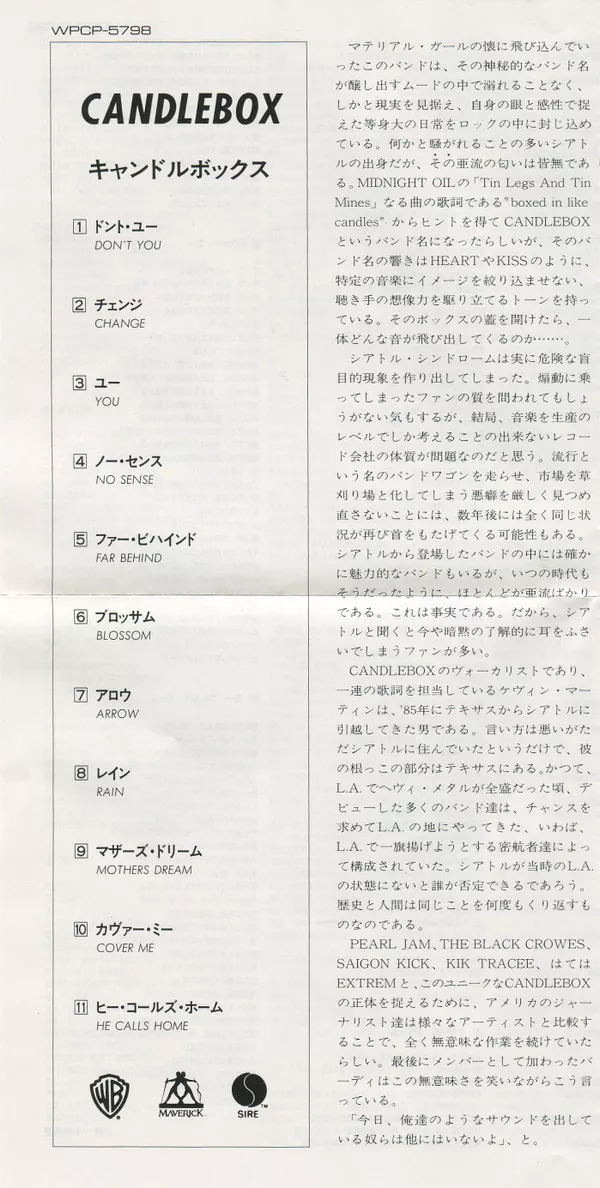 WPCP-5798
CANDLEBOX
キャンドルボックス
1 ドント・ユー
DON'T YOU
2 チェンジ
CHANGE
3 ユー
YOU
4 ノー・センス
NO SENSE
5 ファー・ビハインド
FAR BEHIND
6 ブロッサム
BLOSSOM
7 アロウ
ARROW
8 レイン
RAIN
9 マザーズ・ドリーム
MOTHERS DREAM
10 カヴァー・ミー
COVER ME
11 ヒー・コールズ・ホーム
HE CALLS HOME
WB
MAVERICK
SIRE™
マテリアル・ガールの懐に飛び込んでい
ったこのバンドは、その神秘的なバンド名
が醸し出すムードの中で溺れることなく、
しかと現実を見据え、自身の眼と感性で捉
えた等身大の日常をロックの中に封じ込め
ている。何かと騒がれることの多いシアト
ルの出身だが、その亜流の匂いは皆無であ
る。MIDNIGHT OILの「Tin Legs And Tin
Mines」なる曲の歌詞である"boxed in like
candles"からヒントを得てCANDLEBOX
というバンド名になったらしいが、そのバ
ンド名の響きはHEARTやKISSのように、
特定の音楽にイメージを絞り込ませない、
聴き手の想像力を駆り立てるトーンを持っ
ている。そのボックスの蓋を開けたら、一
体どんな音が飛び出してくるのか……。
シアトル・シンドロームは実に危険な盲
目的現象を作り出してしまった。煽動に乗
ってしまったファンの質を問われてもしょ
うがない気もするが、結局、音楽を生産の
レベルでしか考えることの出来ないレコー
ド会社の体質が問題なのだと思う。流行と
いう名のバンドワゴンを走らせ、市場を草
刈り場と化してしまう悪癖を厳しく見つめ
直さないことには、数年後には全く同じ状
況が再び首をもたげてくる可能性もある。
シアトルから登場したバンドの中には確か
に魅力的なバンドもいるが、いつの時代も
そうだったように、ほとんどが亜流ばかり
である。これは事実である。だから、シア
トルと聞くと今や暗黙の了解的に耳をふさ
いでしまうファンが多い。
CANDLEBOXのヴォーカリストであり、
一連の歌詞を担当しているケヴィン・マー
ティンは、'85年にテキサスからシアトルに
引越してきた男である。言い方は悪いがた
だシアトルに住んでいたというだけで、彼
の根っこの部分はテキサスにある。かつて、
L.A.でヘヴィ・メタルが全盛だった頃、デ
ビューした多くのバンド達は、チャンスを
求めてL.A.の地にやってきた、いわば、
L.A.で一旗揚げようとする密航者達によっ
て構成されていた。シアトルが当時のL.A.
の状態にないと誰が否定できるであろう。
歴史と人間は同じことを何度もくり返すも
のなのである。
PEARL JAM、THE BLACK CROWES、
SAIGON KICK、KIK TRACEE、はては
EXTREMと、このユニークなCANDLEBOX
の正体を捉えるために、アメリカのジャー
ナリスト達は様々なアーティストと比較す
ることで、全く無意味な作業を続けていた
らしい。最後にメンバーとして加わったバ
ーディはこの無意味さを笑いながらこう言
っている。
「今日、俺達のようなサウンドを出して
いる奴らは他にはいないよ」、と。